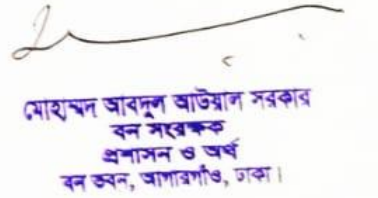 মোহাম্মদ আবদুল আউয়াল সরকার
বন সংরক্ষক
প্রশাসন ও অর্থ
বন ভবন, আগারগাঁও, ঢাকা।